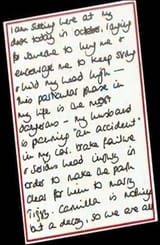 I am sitting here at my
desk today in October, longing
for someone to hug me &
encourage me to keep strong
& hold my head high –
This particular phase in
my life is the most
dangerous – my husband
is planning 'an accident'
in my car. brake failure
& serious head injury in
order to make the path
clear for him to marry
Tiggy. Camilla is nothing
but a decoy, so we are all